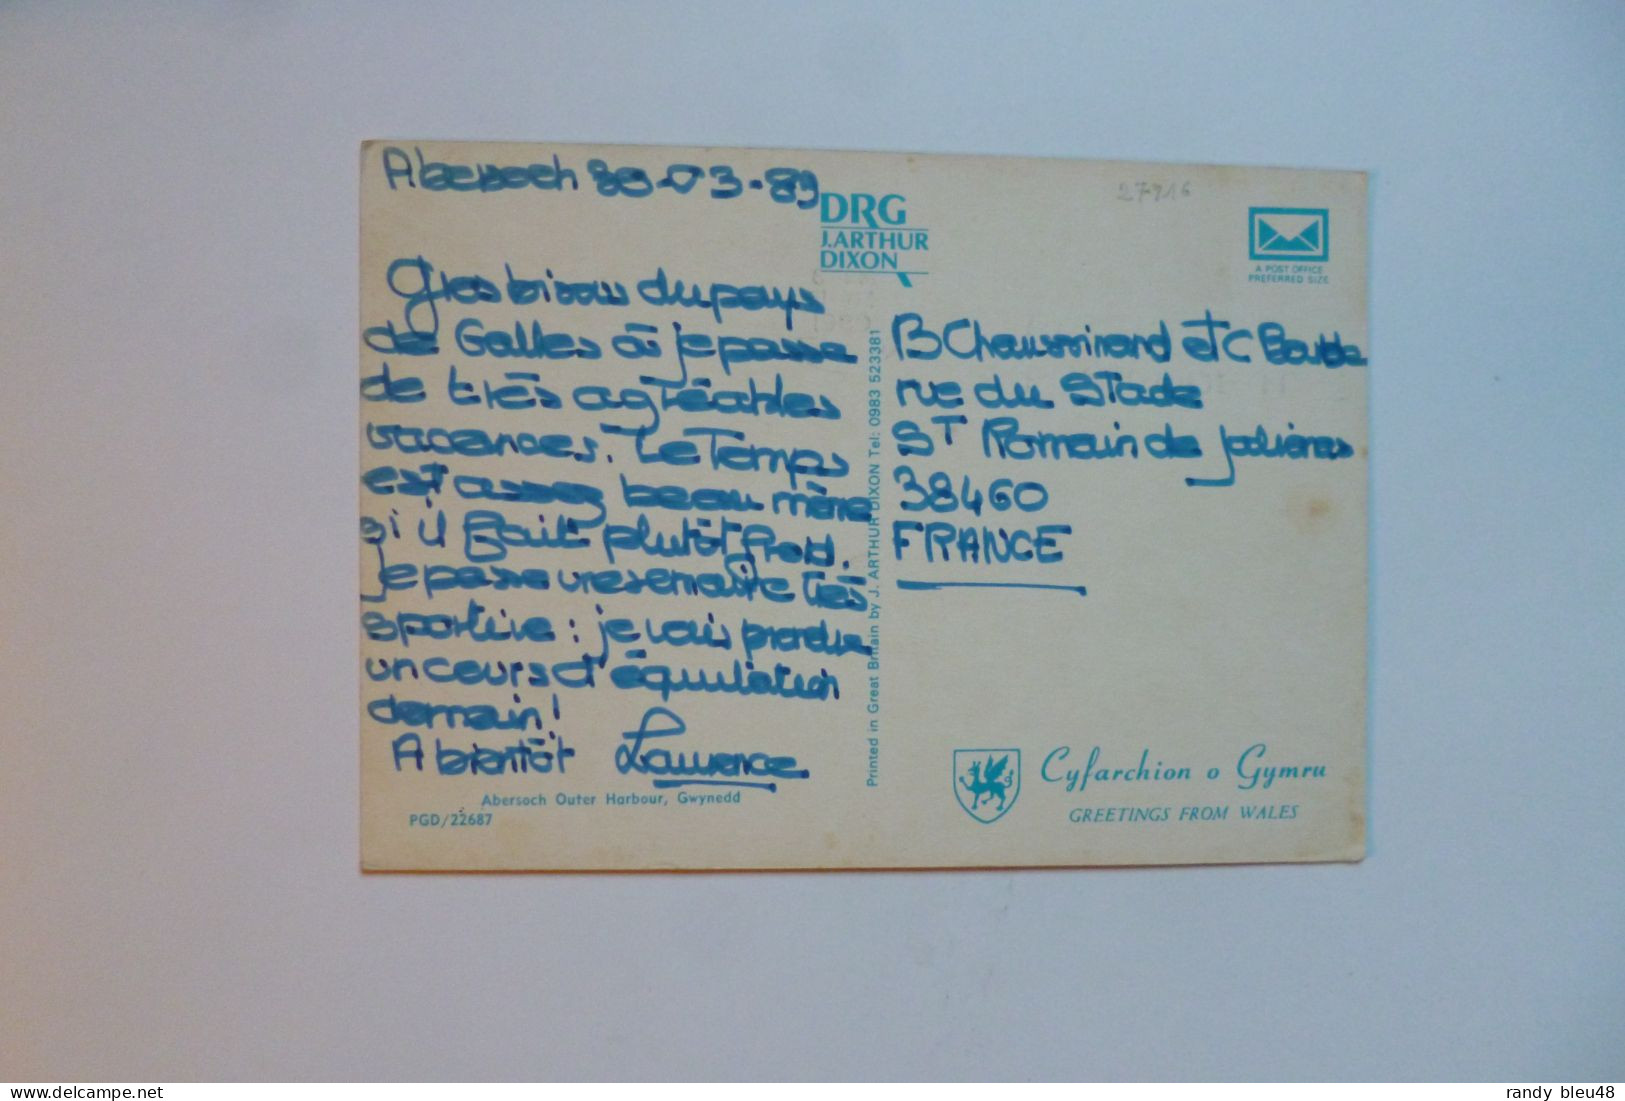 Abersoch 30-03-89
Gros bisous du pays
de Galles où je passe
de très agréables
vacances. Le Temps
est assez beau même
si il fait plutôt froid.
Je passe une semaine très
sportive : je vais prendre
un cours d'équitation
demain!
A bientôt Laurence
Abersoch Outer Harbour, Gwynedd
PGD/22687
DRG
J.ARTHUR
DIXON
Printed in Great Britain by J. ARTHUR DIXON Tel: 0983 523381
27716
A POST OFFICE
PREFERRED SIZE
B Chaussinand et C
rue du Stade
ST Romain de Jalionas
38460
FRANCE
Cyfarchion o Gymru
GREETINGS FROM WALES
randy bleu48